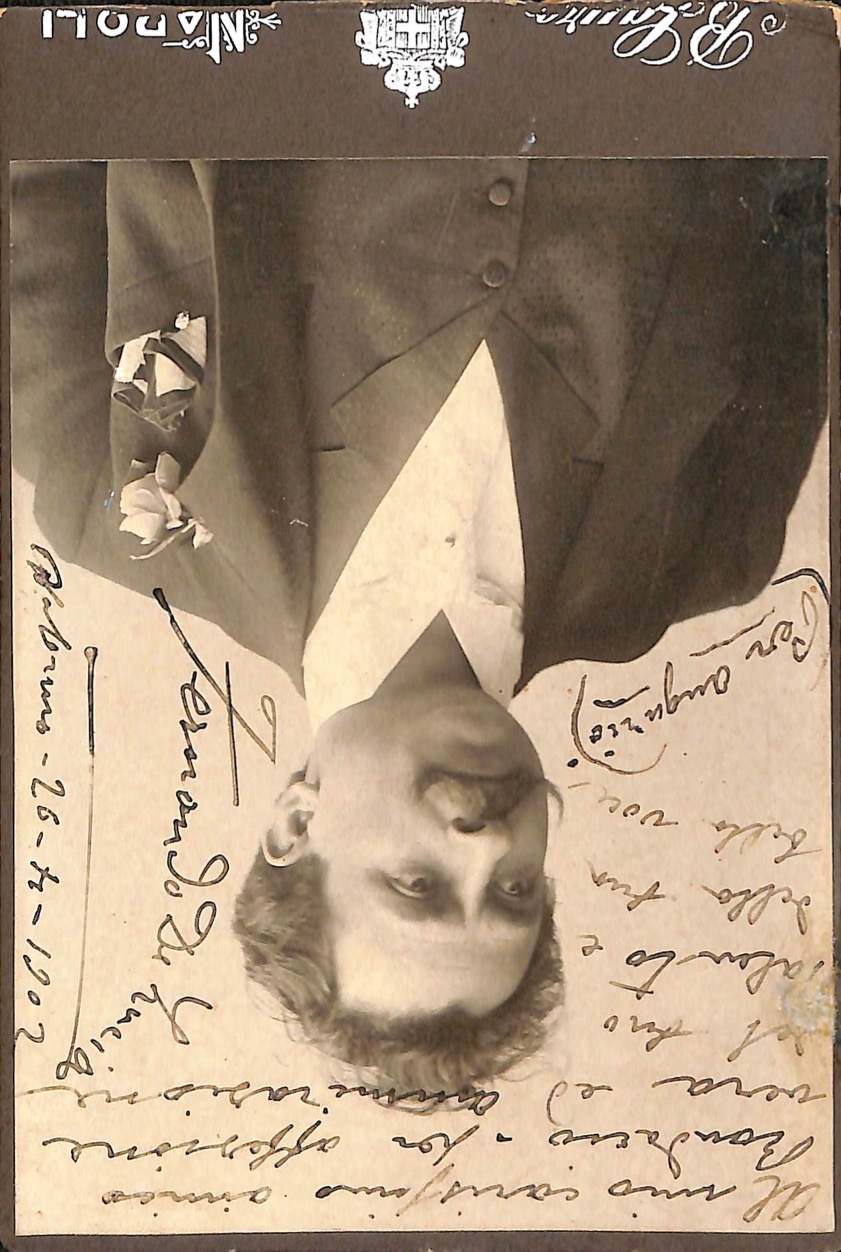 Al mio carissimo amico
per affezione
vera ed ammirazione
del tuo
talento e
della tua
bella voce
(Per augurio)
Fernando De Lucia
Palermo - 26 - 1902
Lauro
NAPOLI